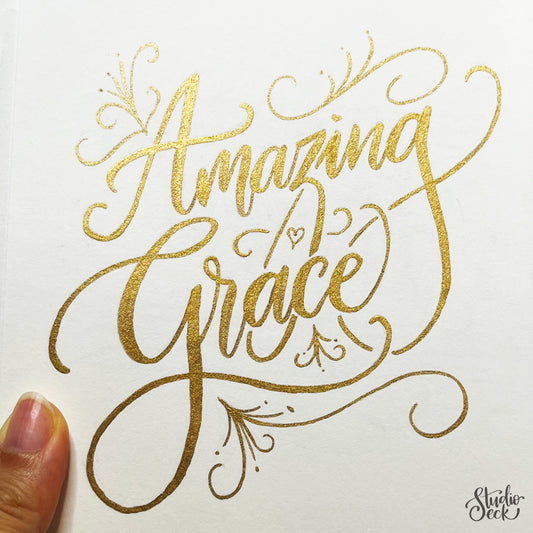 Amazing
Grace
Studio
eck